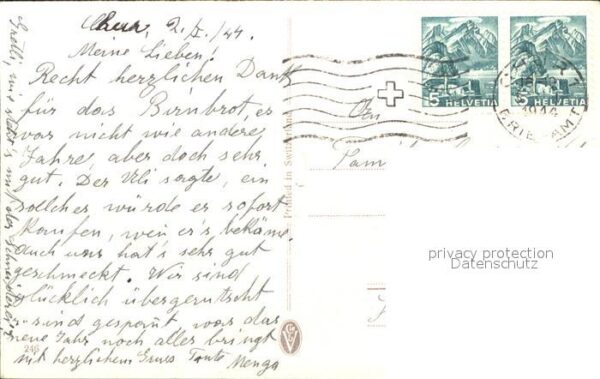 Chur, 2./I./44.
Meine Lieben!
Recht herzlichen Dank
für das Birnbrot, es
war nicht wie andere
Jahre, aber doch sehr
gut. Der Ueli sagte, ein
solches würde er sofort
kaufen, wen er's bekäme.
auch uns hat's sehr gut
geschmeckt. Wir sind
glücklich übergerutscht
u. sind gespannt, was das
neue Jahr noch alles bringt
mit herzlichem Gruss Tante Menga
246
Printed in Switzerland
5 HELVETIA
5 HELVETIA
BRIEF
Fam
privacy protection
Datenschutz